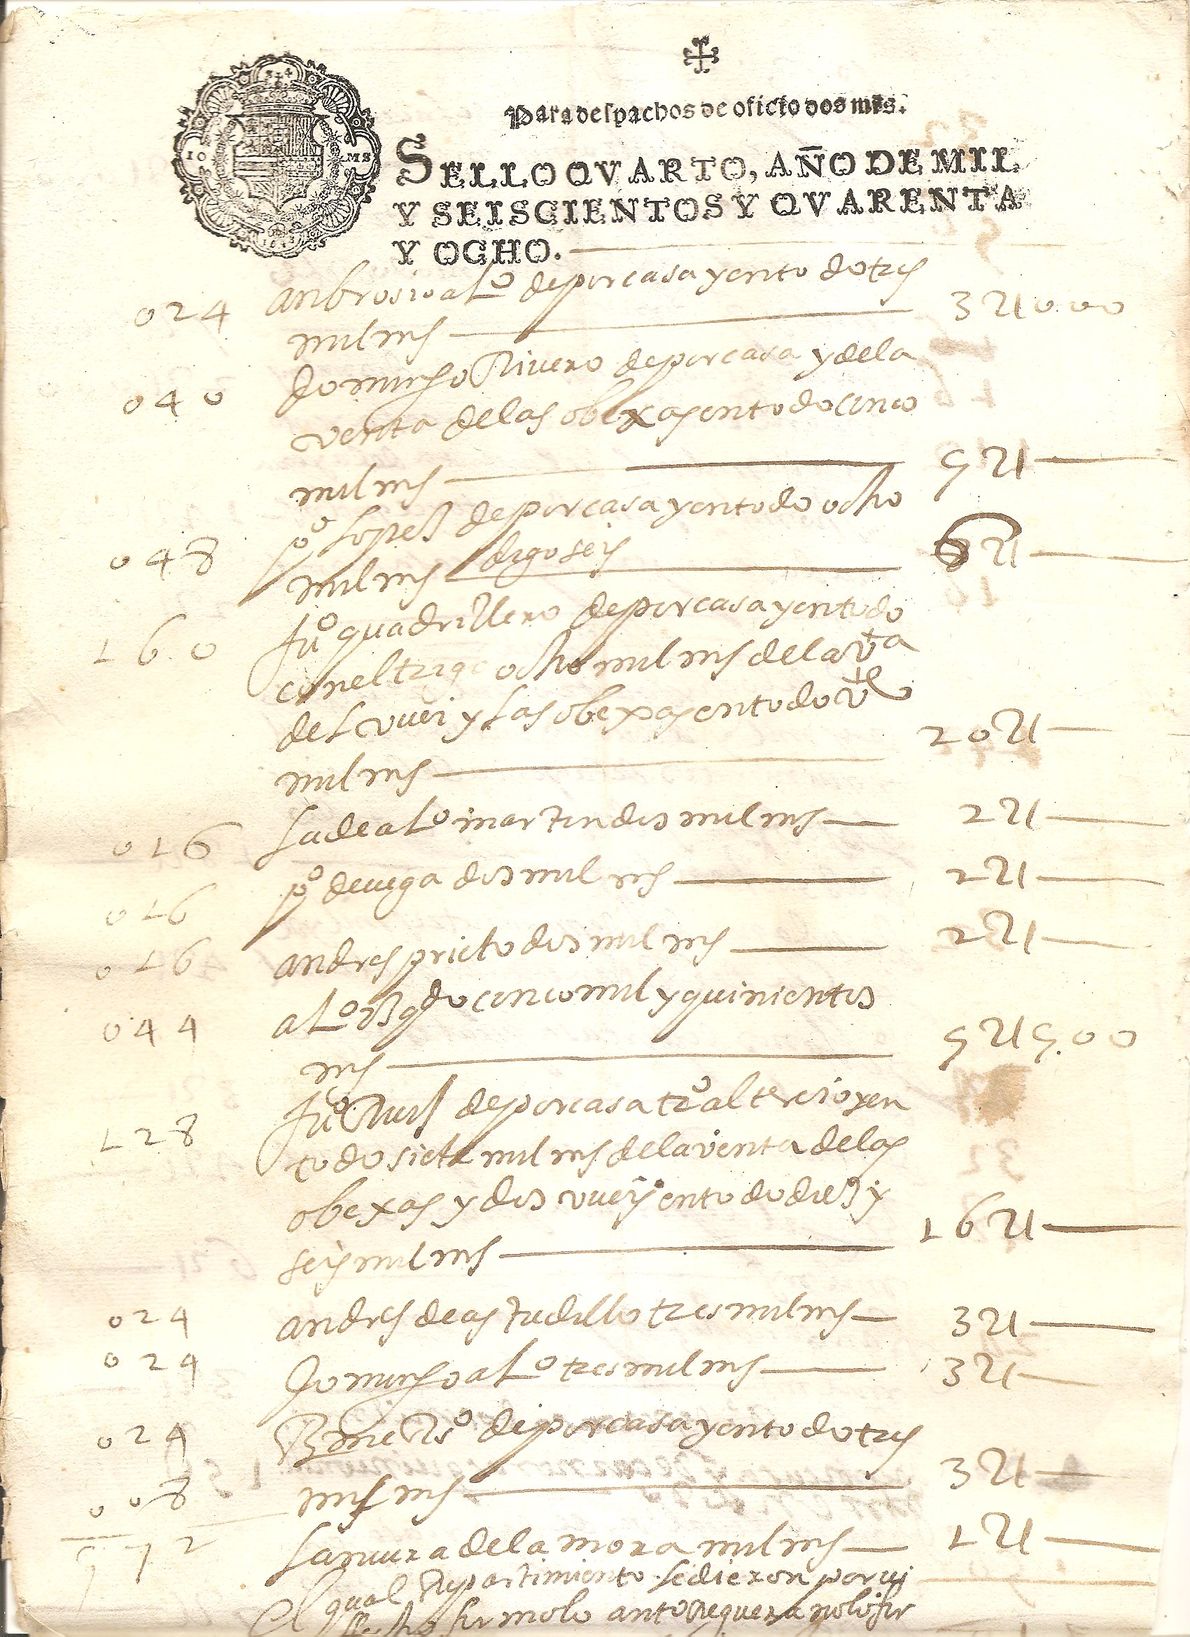 Para despachos de oficio dos mrs.
SELLO QVARTO, AÑO DE MIL
Y SEISCIENTOS Y QVARENTA
Y OCHO.
024 anbrosio alo de por casa y en to do tres
mil mrs 3U000
040 domingo Rivero de por casa y de la
venta de las obexas en todo cinco
mil mrs 5U
048 po lopes de por casa y en todo ocho
mil mrs digo seis 6U
160 Juo quadrillero de por casa y en todo
con el trigo ocho mil mrs de la vta
del vuei y las obexas en todo vte
mil mrs 20U
016 la de alo martin dos mil mrs 2U
016 po de vega dos mil mrs 2U
016 andres prieto dos mil mrs 2U
044 alo cinco mil y quinientos
mrs 5U500
128 Juo Ruis de por casa tro al tercio y en
todo siete mil mrs de la venta de las
obexas y dos vueis en todo dies y
seis mil mrs 16U
024 andres de astudillo tres mil mrs 3U
024 domingo alo tres mil mrs 3U
024 de por casa y en todo tres
mil mrs 3U
008 la de la mora mil mrs 1U
572
el qual Repartimiento se dieron por
fecho firmolo anto Requexa